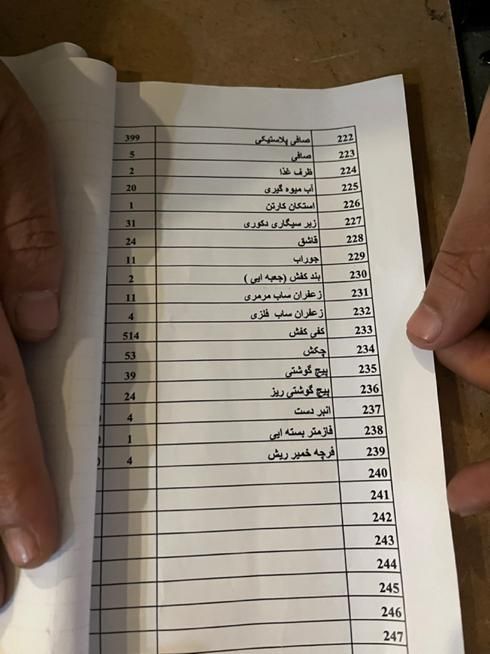 222 صافی پلاستیکی 399
223 صافی 5
224 ظرف غذا 2
225 آب میوه گیری 20
226 استکان کارتن 1
227 زیر سیگاری دکوری 31
228 قاشق 24
229 جوراب 11
230 بند کفش (جعبه ایی ) 2
231 زعفران ساب مرمری 11
232 زعفران ساب فلزی 4
233 کفی کفش 514
234 چکش 53
235 پیچ گوشتی 39
236 پیچ گوشتی ریز 24
237 انبر دست 4
238 فازمتر بسته ایی 1
239 فرچه خمیر ریش 4
240
241
242
243
244
245
246
247